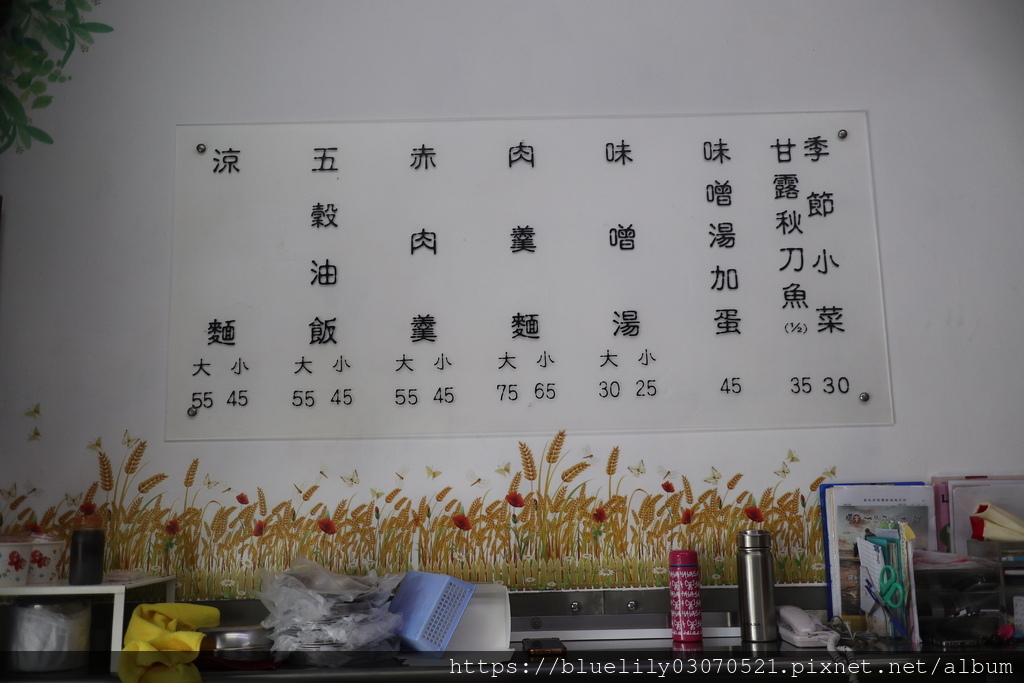 季節小菜
30
甘露秋刀魚(½)
35
味噌湯加蛋
45
味噌湯
大 小
30 25
肉羹麵
大 小
75 65
赤肉羹
大 小
55 45
五穀油飯
大 小
55 45
涼麵
大 小
55 45
https://bluelily03070521.pixnet.net/album